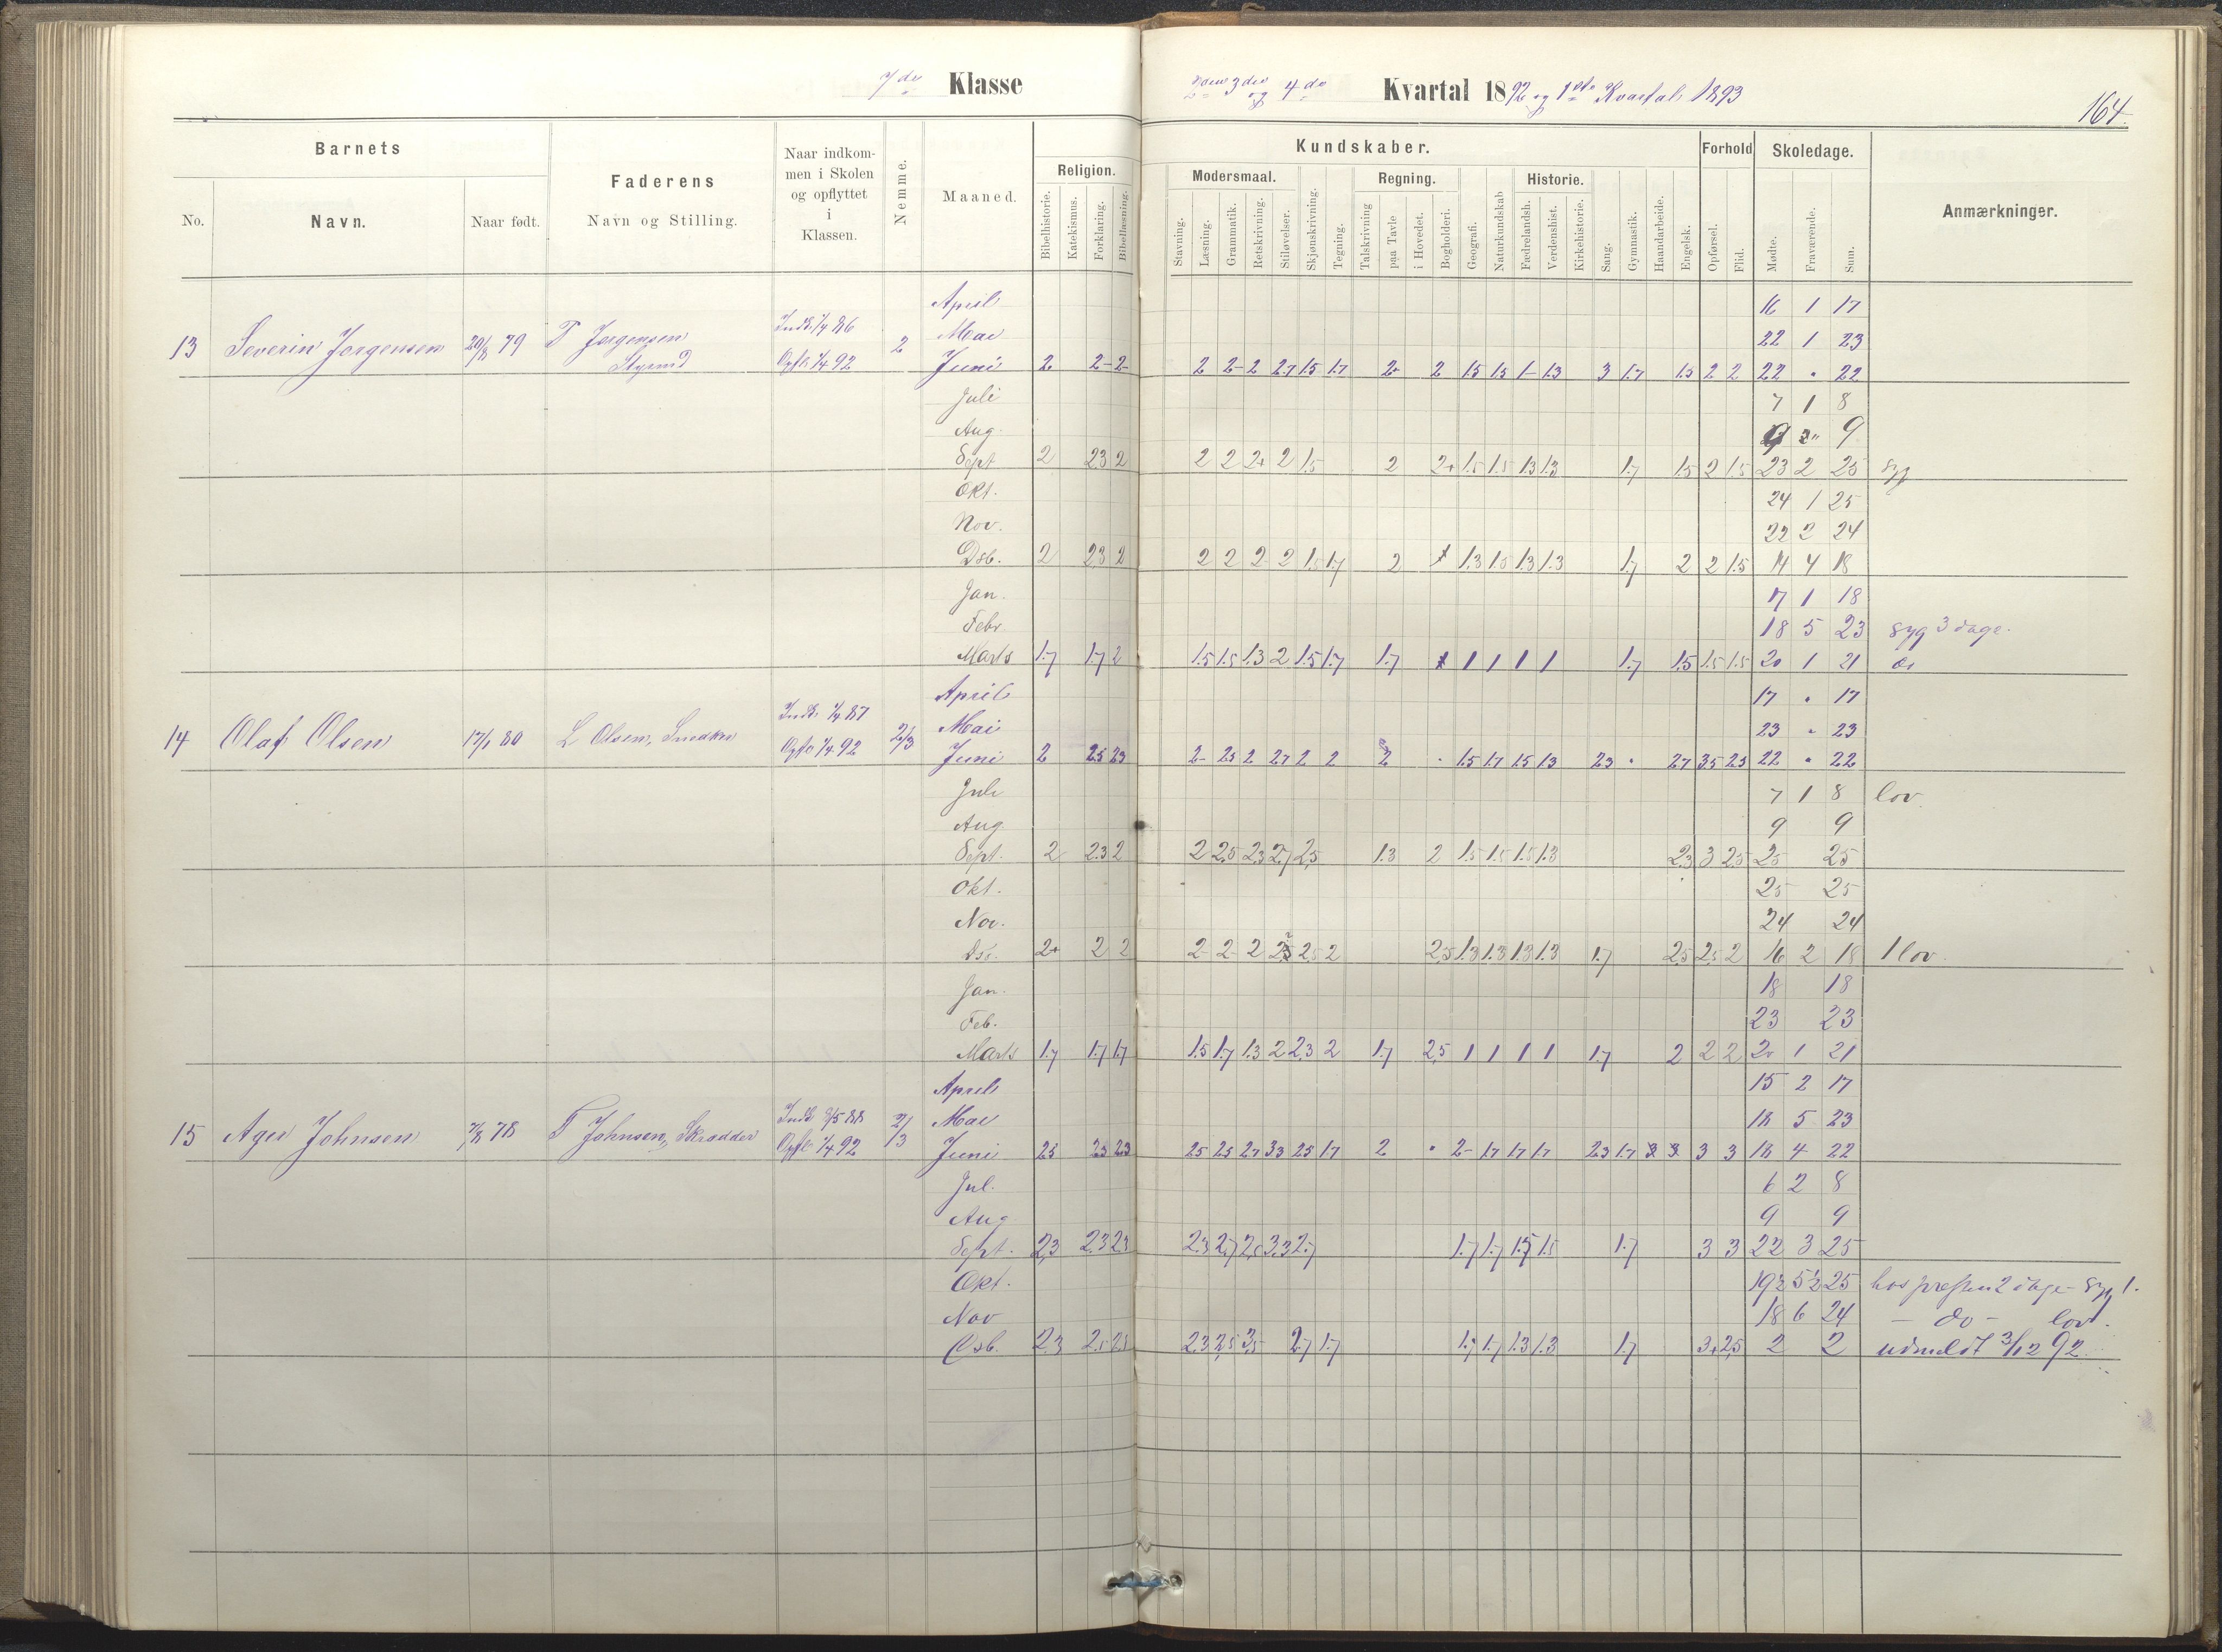 7de Klasse
2den 3die og 4de Kvartal 1892 og 1ste Kvartal 1893
164.
Barnets
No.
Navn.
Naar født.
Faderens
Navn og Stilling.
Naar indkom-
men i Skolen
og opflyttet
i
Klassen.
Nemme.
Maaned.
Kundskaber.
Religion.
Bibelhistorie.
Katekismus.
Forklaring.
Bibellæsning.
Modersmaal.
Stavning.
Læsning.
Grammatik.
Retskrivning.
Stiløvelser.
Skjønskrivning.
Tegning.
Regning.
Talskrivning
paa Tavle
i Hovedet.
Bogholderi.
Geografi.
Naturkundskab
Historie.
Fædrelandsh.
Verdenshist.
Kirkehistorie.
Sang.
Gymnastik.
Haandarbeide.
Engelsk.
Forhold
Opførsel.
Flid.
Skoledage.
Mødte.
Fraværende.
Sum.
Anmærkninger.
April 16 1 17
Mai 22 1 23
13 Severin Jørgensen 20/8 79 T Jørgensen Styrmd Indk. 1/4 86 Opfl. 1/4 92 2
Juni 2 2- 2- 2 2- 2 2.7 1.5 1.7 2- 2 1.5 1.5 1- 1.3 3 1.7 1.5 2 2 22 . 22
Juli 7 1 8
Aug. 9 9
Sept 2 2.3 2 2 2 2+ 2 1.5 2 2+ 1.5 1.5 1.3 1.3 1.7 1.5 2 1.5 23 2 25 syg
Okt. 24 1 25
Nov. 22 2 24
Dsb. 2 2.3 2 2 2 2 2 1.5 1.7 2 1.3 1.5 1.3 1.3 1.7 2 2 1.5 14 4 18
Jan. 17 1 18
Febr 18 5 23 syg 3 dage.
Marts 1.7 1.7 2 1.5 1.5 1.3 2 1.5 1.7 1.7 1 1 1 1 1.7 1.5 1.5 1.5 20 1 21 do
April 17 . 17
Mai 23 . 23
14 Olaf Olsen 17/1 80 L Olsen, Snedker Indk. 1/4 87 Opfl. 1/4 92 2/3
Juni 2 2.5 2.3 2- 2.5 2 2.7 2 2 2 . 1.5 1.7 1.5 1.3 2.3 . 2.7 3.5 2.5 22 . 22
Juli 7 1 8 lov.
Aug 9 9
Sept. 2 2.3 2 2 2.5 2.3 2.7 2.5 1.3 2 1.5 1.5 1.5 1.3 2.3 3 2.5 25 25
Okt. 25 25
Nov. 24 24
Dsb. 2+ 2 2 2- 2- 2 2.5 2 2.5 1.3 1.3 1.3 1.3 1.7 2.5 2.5 2 16 2 18 1 lov.
Jan. 18 18
Feb. 23 23
Marts 1.7 1.7 1.7 1.5 1.7 1.3 2 2.3 2 1.7 2.5 1 1 1 1 1.7 2 2 2 20 1 21
April 15 2 17
Mai 18 5 23
15 Johnsen 78 T Johnsen, Skrædder Indk 2/5 88 Opfl. 1/4 92 2/3
Juni 2.5 2.3 2.3 2.5 2.5 2.7 3.3 2.5 1.7 2 . 2- 1.7 1.7 1.7 2.3 1.7 3 3 18 4 22
Jul. 6 2 8
Aug 9 9
Sept. 2.3 2.3 2.3 2.3 2.7 2.5 3.3 2.7 1.7 1.7 1.5 1.5 1.7 3 3 22 3 25
Okt. 19½ 5½ 25 hos præsten 2 dage - syg 1.
Nov 18 6 24 - do - lov 1.
Dsb. 2.3 2.5 2.5 2.3 2.5 3.5 2.7 1.7 1.7 1.7 1.3 1.3 1.7 3+ 2.5 2 2 udmeldt 3/12 92